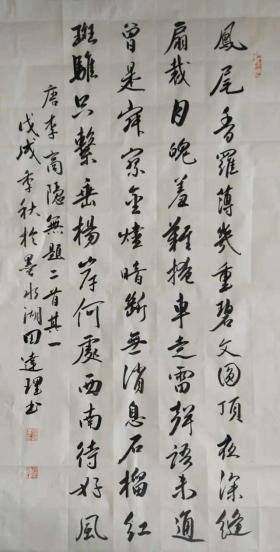 鳳尾香羅薄幾重碧文圓頂夜深縫
扇裁月魄羞難掩車走雷聲語未通
曾是寂寥金燼暗斷無消息石榴紅
斑騅只繫垂楊岸何處西南待好風
唐李商隱無題二首其一
戊戌季秋於墨水湖田達理書